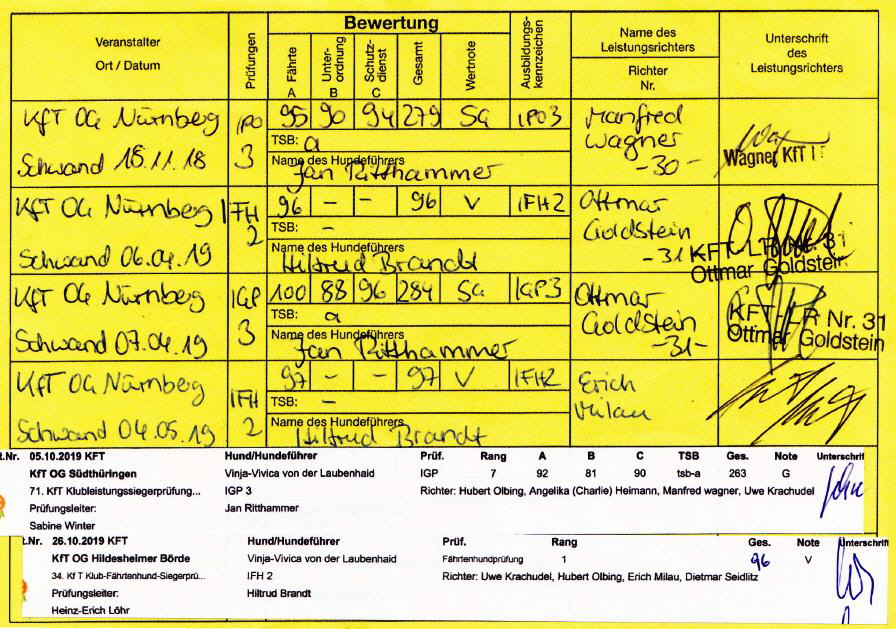 Bewertung
Veranstalter
Ort / Datum
Prüfungen
Fährte
A
Unter-
ordnung
B
Schutz-
dienst
C
Gesamt
Wertnote
Ausbildungs-
kennzeichen
Name des
Leistungsrichters
Richter
Nr.
Unterschrift
des
Leistungsrichters
KfT OG Nürnberg IPO 95 90 94 279 SG IPO3 Manfred
TSB: a Wagner
Schwand 18.11.18 3 -30- Wagner KfT
Name des Hundeführers
Jan Ritthammer
KfT OG Nürnberg IFH 96 - - 96 V IFH2 Ottmar
2 TSB: - Goldstein
Schwand 06.04.19 Name des Hundeführers -31- KFT-LR Nr. 31
Hiltrud Brandt Ottmar Goldstein
KfT OG Nürnberg IGP 100 88 96 284 SG IGP3 Ottmar
3 TSB: a Goldstein KFT-LR Nr. 31
Schwand 07.04.19 Name des Hundeführers -31- Ottmar Goldstein
Jan Ritthammer
KfT OG Nürnberg IFH 97 - - 97 V IFH2 Erich
2 TSB: - Milau
Schwand 04.05.19 Name des Hundeführers
Hiltrud Brandt
.Nr. 05.10.2019 KFT Hund/Hundeführer Prüf. Rang A B C TSB Ges. Note Unterschrift
KfT OG Südthüringen Vinja-Vivica von der Laubenhaid IGP 7 92 81 90 tsb-a 263 G
71. KfT Klubleistungssiegerprüfung... IGP 3 Richter: Hubert Olbing, Angelika (Charlie) Heimann, Manfred wagner, Uwe Krachudel
Prüfungsleiter: Jan Ritthammer
Sabine Winter
.Nr. 26.10.2019 KFT Hund/Hundeführer Prüf. Rang Ges. Note Unterschrift
KfT OG Hildesheimer Börde Vinja-Vivica von der Laubenhaid Fährtenhundprüfung 1 96 V
34. Kf T Klub-Fährtenhund-Siegerprü... IFH 2 Richter: Uwe Krachudel, Hubert Olbing, Erich Milau, Dietmar Seidlitz
Prüfungsleiter: Hiltrud Brandt
Heinz-Erich Löhr